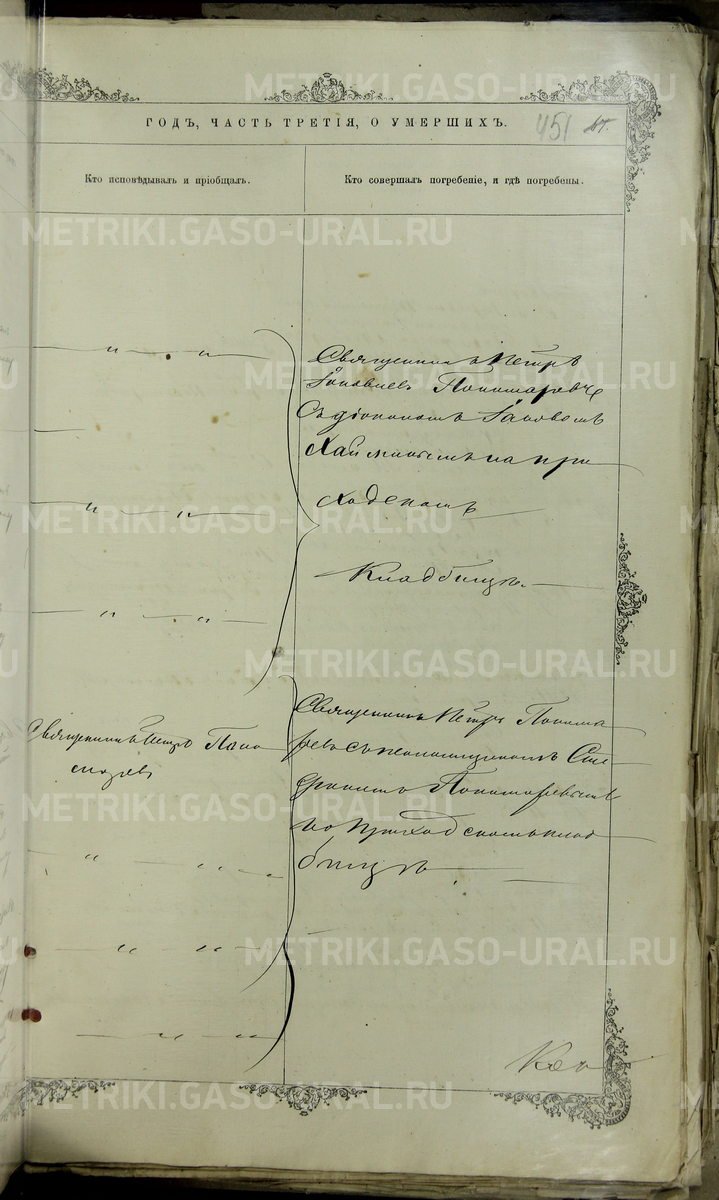 METRIKI.GASO-URAL.RU
ГОДЪ, ЧАСТЬ ТРЕТІЯ, О УМЕРШИХЪ.
451
Кто исповѣдывалъ и пріобщалъ.
Кто совершалъ погребеніе, и гдѣ погребены.
Священникъ Петръ
Іаковлев Пономаревъ
Съ діакономъ Іаковомъ
на при
ходскомъ
Кладбищѣ.
Священникъ Петръ Поно
марев
Священникъ Петръ Понома
ревъ съ псаломщикомъ
Пономаревымъ
на приходскомъ клад
бищѣ